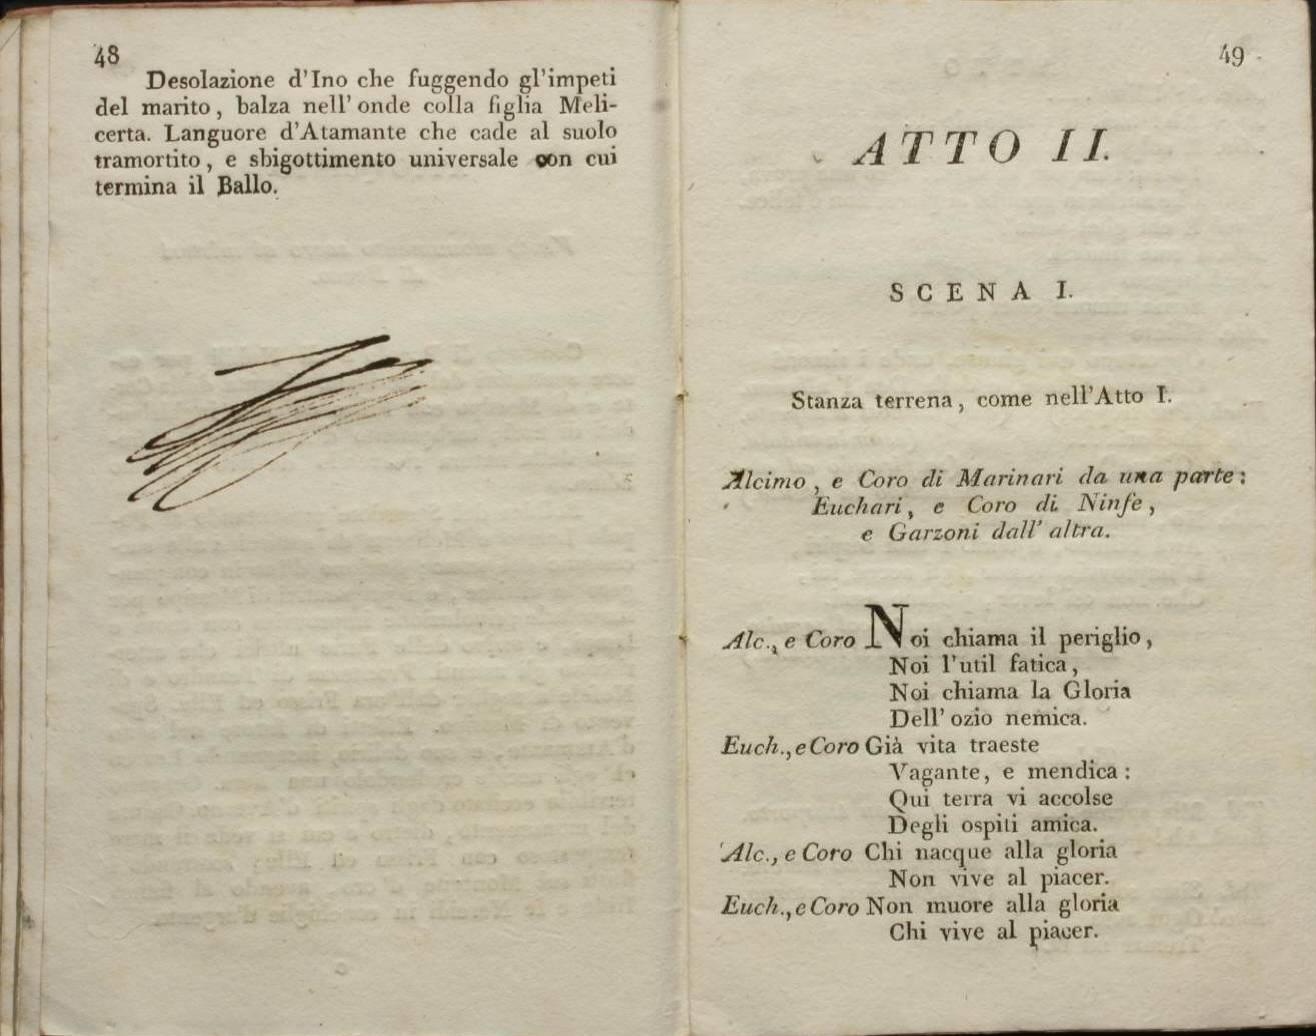 48
Desolazione d'Ino che fuggendo gl'impeti
del marito, balza nell'onde colla figlia Meli-
certa. Languore d'Atamante che cade al suolo
tramortito, e sbigottimento universale con cui
termina il Ballo.
49
ATTO II.
SCENA I.
Stanza terrena, come nell'Atto I.
Alcimo, e Coro di Marinari da una parte:
Euchari, e Coro di Ninfe,
e Garzoni dall'altra.
Alc., e Coro Noi chiama il periglio,
Noi l'util fatica,
Noi chiama la Gloria
Dell'ozio nemica.
Euch., e Coro Già vita traeste
Vagante, e mendica:
Qui terra vi accolse
Degli ospiti amica.
Alc., e Coro Chi nacque alla gloria
Non vive al piacer.
Euch., e Coro Non muore alla gloria
Chi vive al piacer.